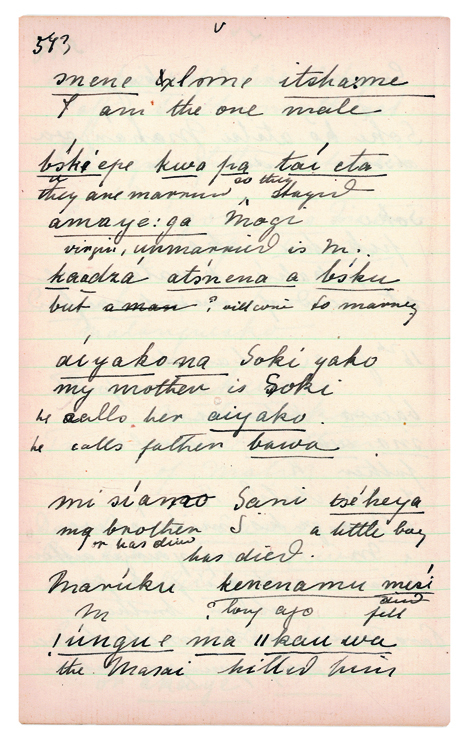 573
mene &lome itsha:me
I am the one male
bśkéepe kwa pa taí eta
they are married so they stayed
amaye:ga Mogi
virgin, unmarried is M.
kaadzá atśnena a bśku
but a man ? will come to marry
aíyakona Soki yako
my mother is Soki
he calls her aiyako.
he calls father bawa
mi síamo Sani tséheya
my brother S a little boy
or has died
has died.
Marúku kenenamu mesí
M ? long ago died fell
!úngue ma ǁkau wa
the Masai killed him